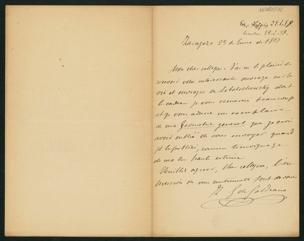 Zaragoza 23 de Enero de 1897
Mon cher collègue: J'ai eu le plaisir de
recevoir votre intéressant ouvrage sur la
vie et ouvrages de Lobatschewsky dont
le cadeau je vous remercie beaucoup
et je vous adresse un exemplaire
de ma Geometria general que je
avais oublié de vous envoyer quand
je la publiai, comme témoignage
de ma plus haute estime.
Veuillez agréer, cher collègue, l'ex-
pression de mes sentiments
Z. G. de Galdeano